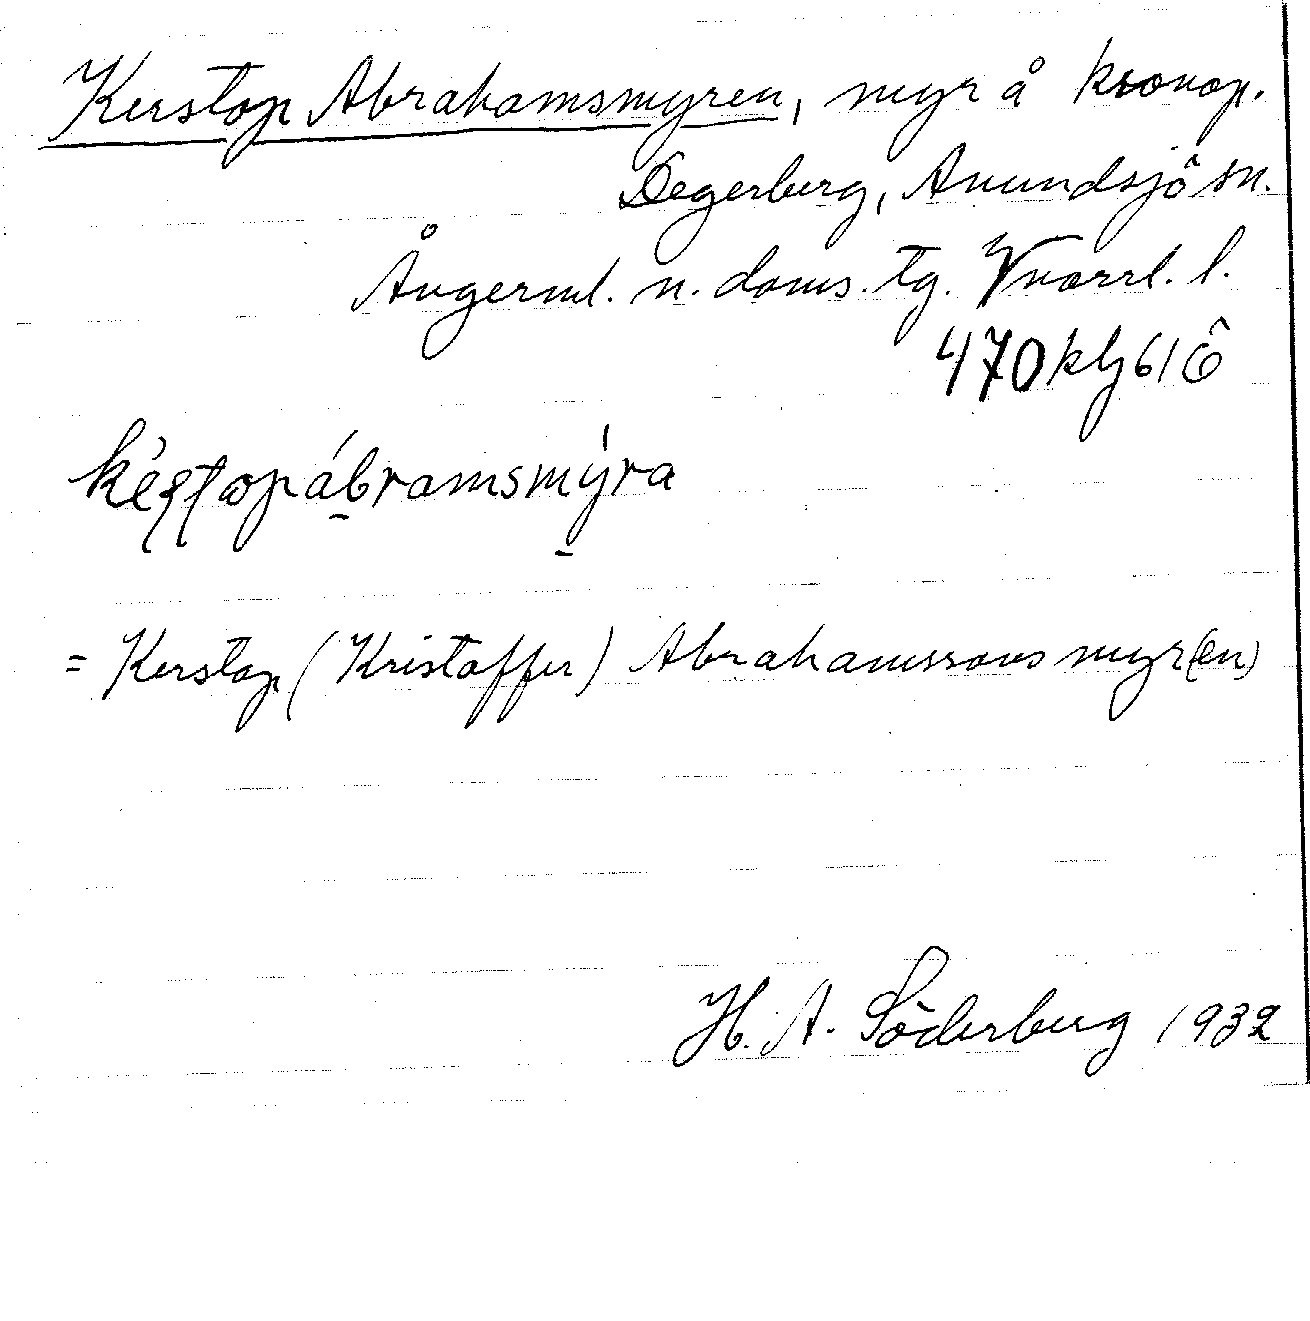 Kerstop Abrahamsmyren, myr å kronop.
Degerberg, Anundsjö sn.
Ångerml. n. doms. tg. Vnorrl. l.
470 klj 61 ô
= Kerstop (Kristoffer) Abrahamssons myr(en)
H. A. Söderberg 1932